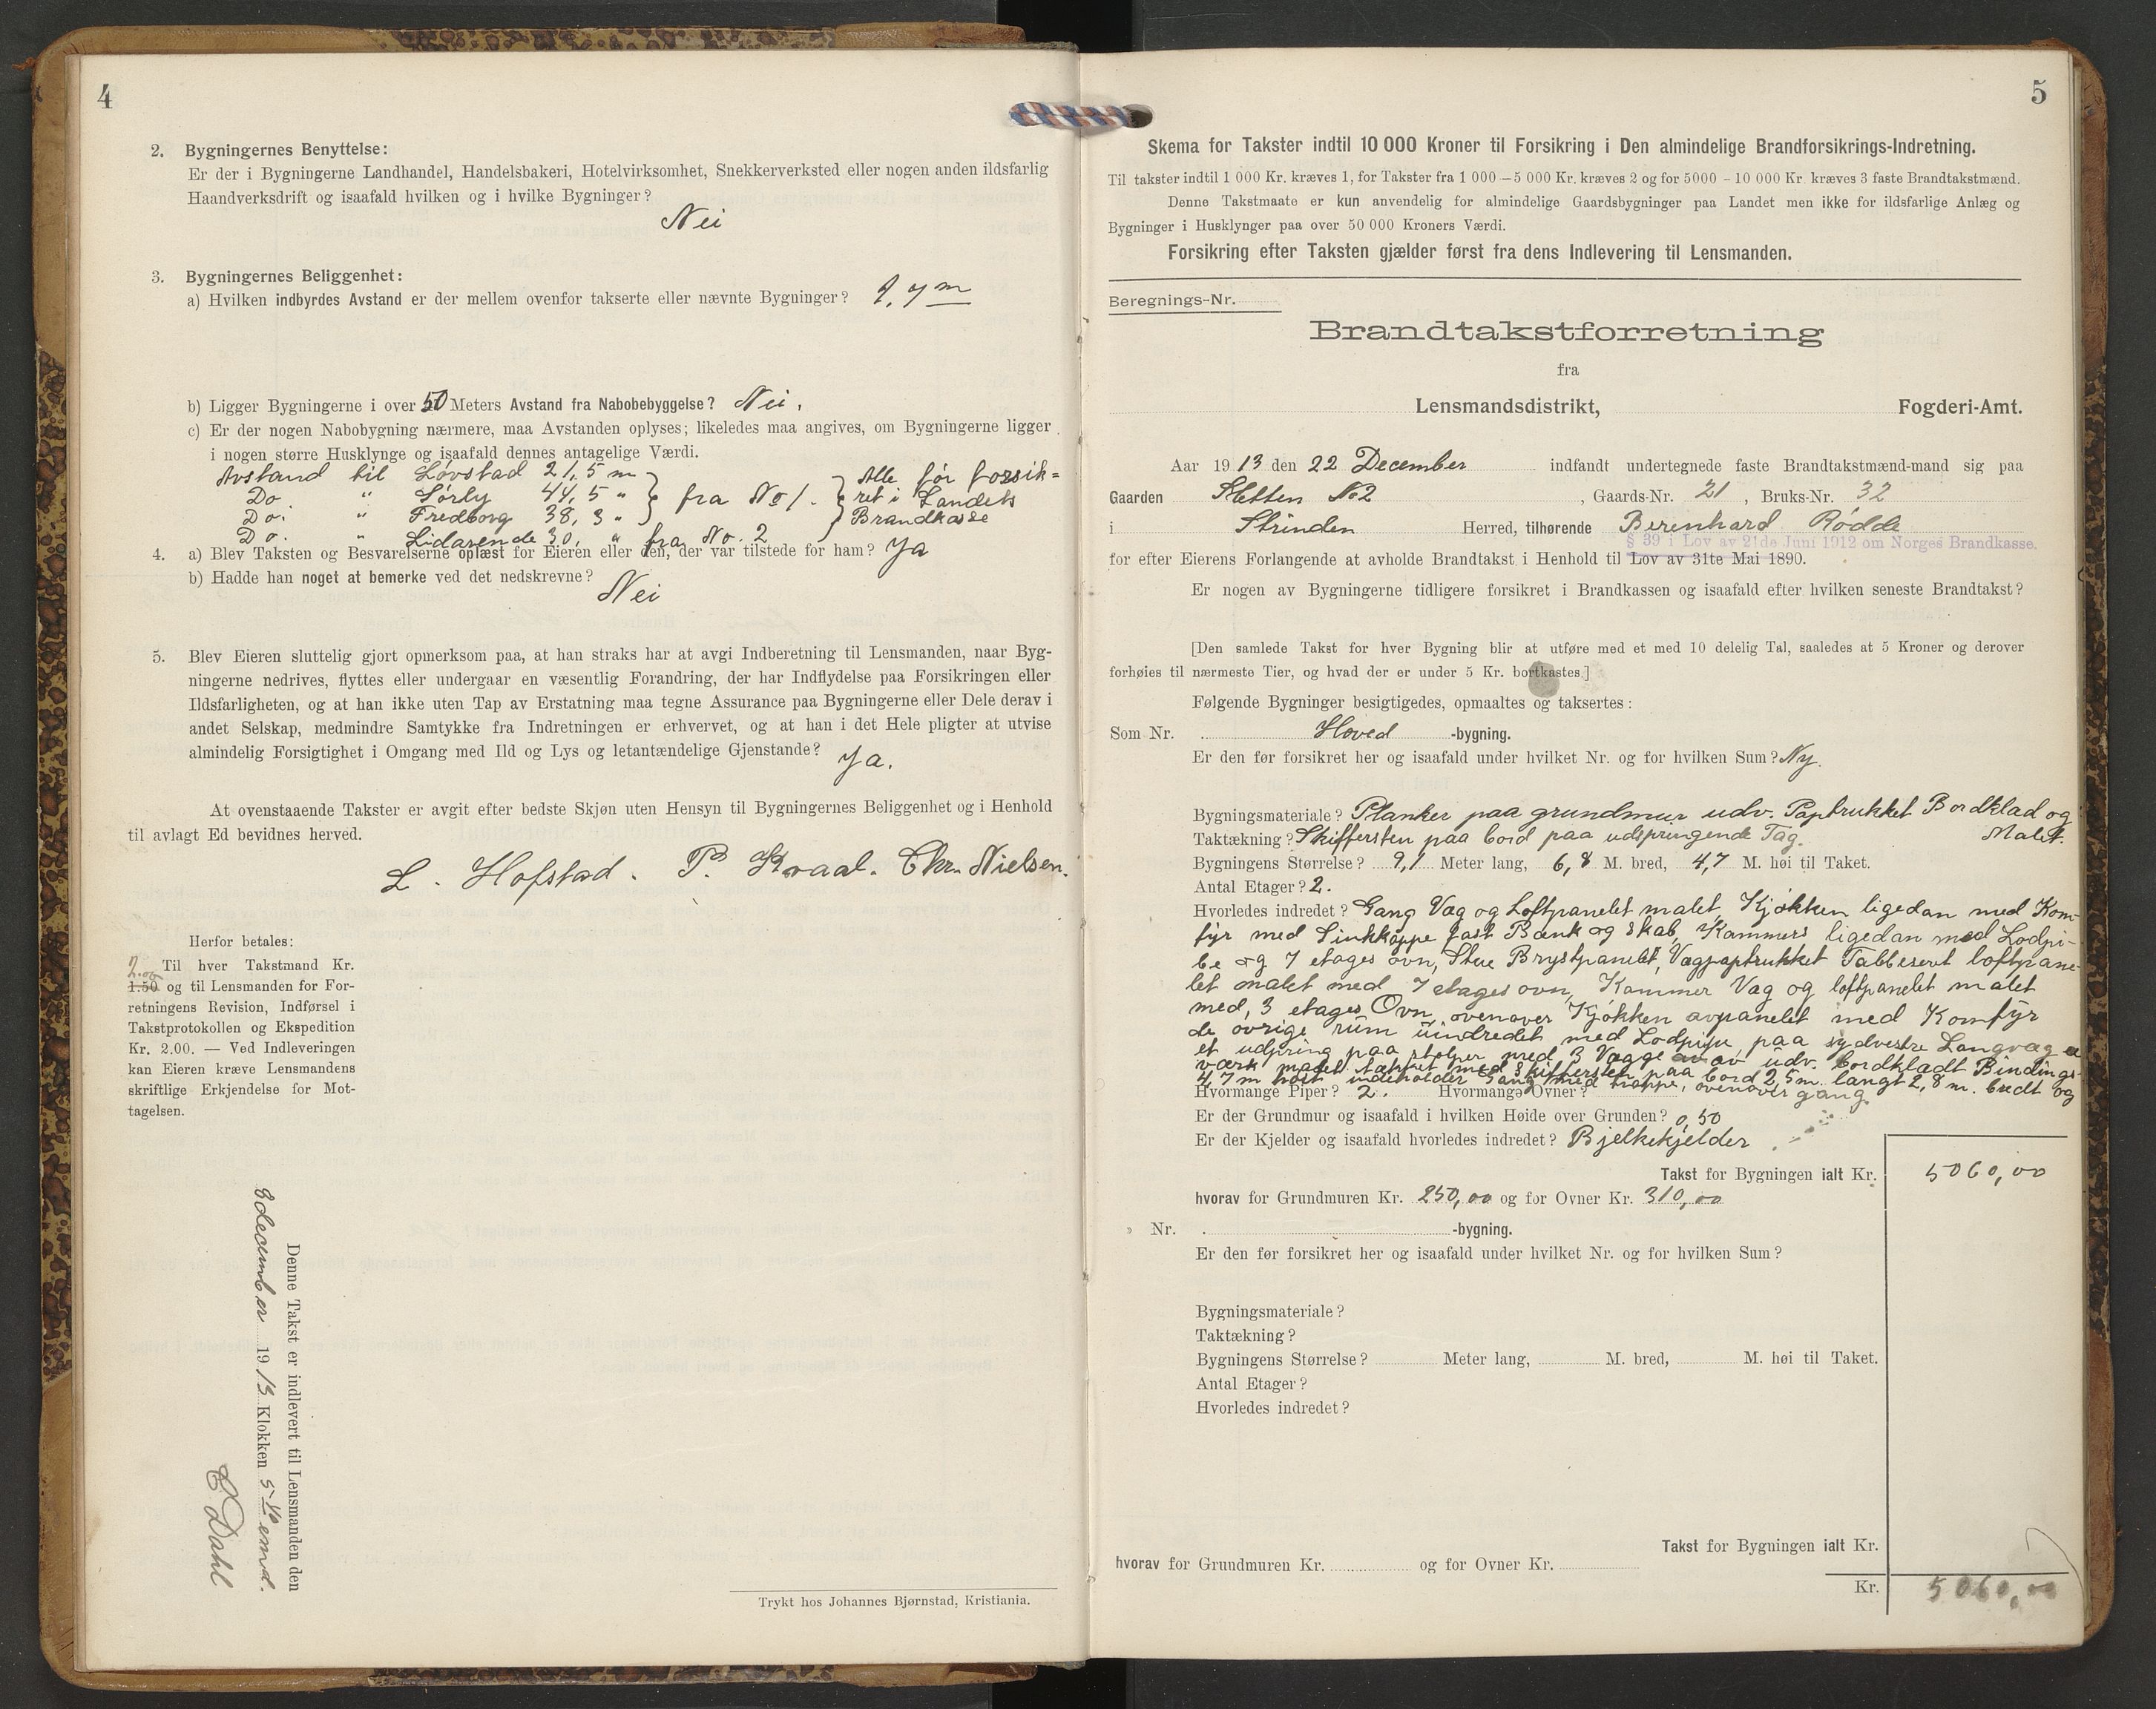 4
2. Bygningernes Benyttelse:
Er der i Bygningerne Landhandel, Handelsbakeri, Hotelvirksomhet, Snekkerverksted eller nogen anden ildsfarlig
Haandverksdrift og isaafald hvilken og i hvilke Bygninger?
Nei
3. Bygningernes Beliggenhet:
a) Hvilken indbyrdes Avstand er der mellem ovenfor takserte eller nævnte Bygninger? 9,7 m
b) Ligger Bygningerne i over 50 Meters Avstand fra Nabobebyggelse? Nei.
c) Er der nogen Nabobygning nærmere, maa Avstanden oplyses; likeledes maa angives, om Bygningerne ligger
i nogen større Husklynge og isaafald dennes antagelige Værdi.
Avstand til Løvstad 21,5 m
Do " Sørly 44,5 " fra No 1. Alle før forsik=
Do: " Fredborg 38,3 " ret i Landets
Brandkasse
Do. " Lidarende 30, " fra No. 2
4. a) Blev Taksten og Besvarelserne oplæst for Eieren eller den, der var tilstede for ham? Ja
b) Hadde han noget at bemerke ved det nedskrevne?
Nei
5. Blev Eieren sluttelig gjort opmerksom paa, at han straks har at avgi Indberetning til Lensmanden, naar Byg-
ningerne nedrives, flyttes eller undergaar en væsentlig Forandring, der har Indflydelse paa Forsikringen eller
Ildsfarligheten, og at han ikke uten Tap av Erstatning maa tegne Assurance paa Bygningerne eller Dele derav i
andet Selskap, medmindre Samtykke fra Indretningen er erhvervet, og at han i det Hele pligter at utvise
almindelig Forsigtighet i Omgang med Ild og Lys og letantændelige Gjenstande? Ja.
At ovenstaaende Takster er avgit efter bedste Skjøn uten Hensyn til Bygningernes Beliggenhet og i Henhold
til avlagt Ed bevidnes herved.
L. Hofstad. P. Kraal. Chr. Nielsen.
Herfor betales:
2.00 Til hver Takstmand Kr.
1.50 og til Lensmanden for For-
retningens Revision, Indførsel i
Takstprotokollen og Ekspedition
Kr. 2.00. — Ved Indleveringen
kan Eieren kræve Lensmandens
skriftlige Erkjendelse for Mot-
tagelsen.
Denne Takst er indlevert til Lensmanden den
8 december 1913 Klokken 5 emd.
C Dahl
Trykt hos Johannes Bjørnstad, Kristiania.
5
Skema for Takster indtil 10 000 Kroner til Forsikring i Den almindelige Brandforsikrings-Indretning.
Til takster indtil 1 000 Kr. kræves 1, for Takster fra 1 000 — 5 000 Kr. kræves 2 og for 5000 – 10 000 Kr. kræves 3 faste Brandtakstmænd.
Denne Takstmaate er kun anvendelig for almindelige Gaardsbygninger paa Landet men ikke for ildsfarlige Anlæg og
Bygninger i Husklynger paa over 50 000 Kroners Værdi.
Forsikring efter Taksten gjælder først fra dens Indlevering til Lensmanden.
Beregnings-Nr.
Brandtakstforretning
fra
Lensmandsdistrikt, Fogderi-Amt.
Aar 1913 den 22 December indfandt undertegnede faste Brandtakstmænd-mand sig paa
Gaarden Sletten No 2, Gaards-Nr. 21, Bruks-Nr. 32
i Strinden Herred, tilhørende Berenhard Rødde
§ 39 i Lov av 21de Juni 1912 om Norges Brandkasse.
for efter Eierens Forlangende at avholde Brandtakst i Henhold til Lov av 31te Mai 1890.
Er nogen av Bygningerne tidligere forsikret i Brandkassen og isaafald efter hvilken seneste Brandtakst?
[Den samlede Takst for hver Bygning blir at utføre med et med 10 delelig Tal, saaledes at 5 Kroner og derover
forhøies til nærmeste Tier, og hvad der er under 5 Kr. bortkastes.]
Følgende Bygninger besigtigedes, opmaaltes og taksertes:
Som Nr. Hoved -bygning.
Er den før forsikret her og isaafald under hvilket Nr. og for hvilken Sum? Ny.
Bygningsmateriale? Planker paa grundmur udv. Paptrukket Bordklad og
Malet.
Taktækning? Skiffersten paa bord paa udspringende Tag.
Bygningens Størrelse? 9,1 Meter lang, 6,8 M. bred, 4,7 M. høi til Taket.
Antal Etager? 2.
Hvorledes indredet? Gang Væg og Loftpanelet malet, Kjøkken ligedan med Kom-
fyr med Sinkkappe fast Bænk og skab, Kammers ligedan med Lodpi-
be og 7 etages ovn, Stue Brystpanelet, Vægpaptrukket Tabbesert loftpane-
let malet med 7 etages ovn, Kammer Væg og loftpanelet malet
med, 3 etages Ovn, ovenover Kjøkken avpanelet med Komfyr
de øvrige rum uindredet med Lodpipe, paa sydvestre Langvæg er
et udspring paa stolper med 3 Vægge av udv. bordkladt Bindings-
værk malet tækket med Skiffersten paa bord 2,5 m. langt 2,8 m. bredt og
4,7 m høit indeholder Gang med trappe, ovenover gang.
Hvormange Piper? 2. Hvormange Ovner?
Er der Grundmur og isaafald i hvilken Høide over Grunden? 0,50
Er der Kjelder og isaafald hvorledes indredet? Bjelkekjelder
Takst for Bygningen ialt Kr. 5060,00
hvorav for Grundmuren Kr. 250,00 og for Ovner Kr. 310,00
» Nr. -bygning.
Er den før forsikret her og isaafald under hvilket Nr. og for hvilken Sum?
Bygningsmateriale?
Taktækning?
Bygningens Størrelse? Meter lang, M. bred, M. høi til Taket.
Antal Etager?
Hvorledes indredet?
Takst for Bygningen ialt Kr.
hvorav for Grundmuren Kr. og for Ovner Kr.
Kr. 5060,00